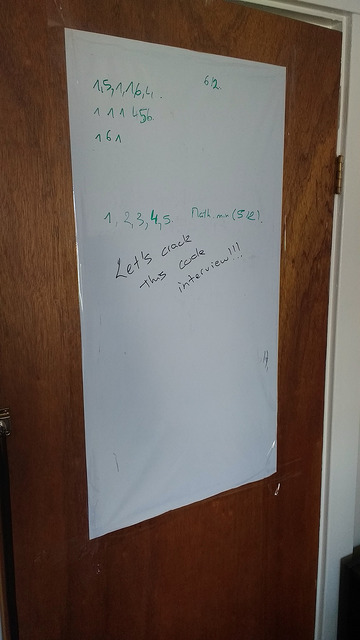 1,5,1,1,6,4, 6/2.
1 1 1 4 5 6
1 6 1
1, 2, 3, 4, 5. Math.min(5/2).
Let's crack
this code
interview!!!